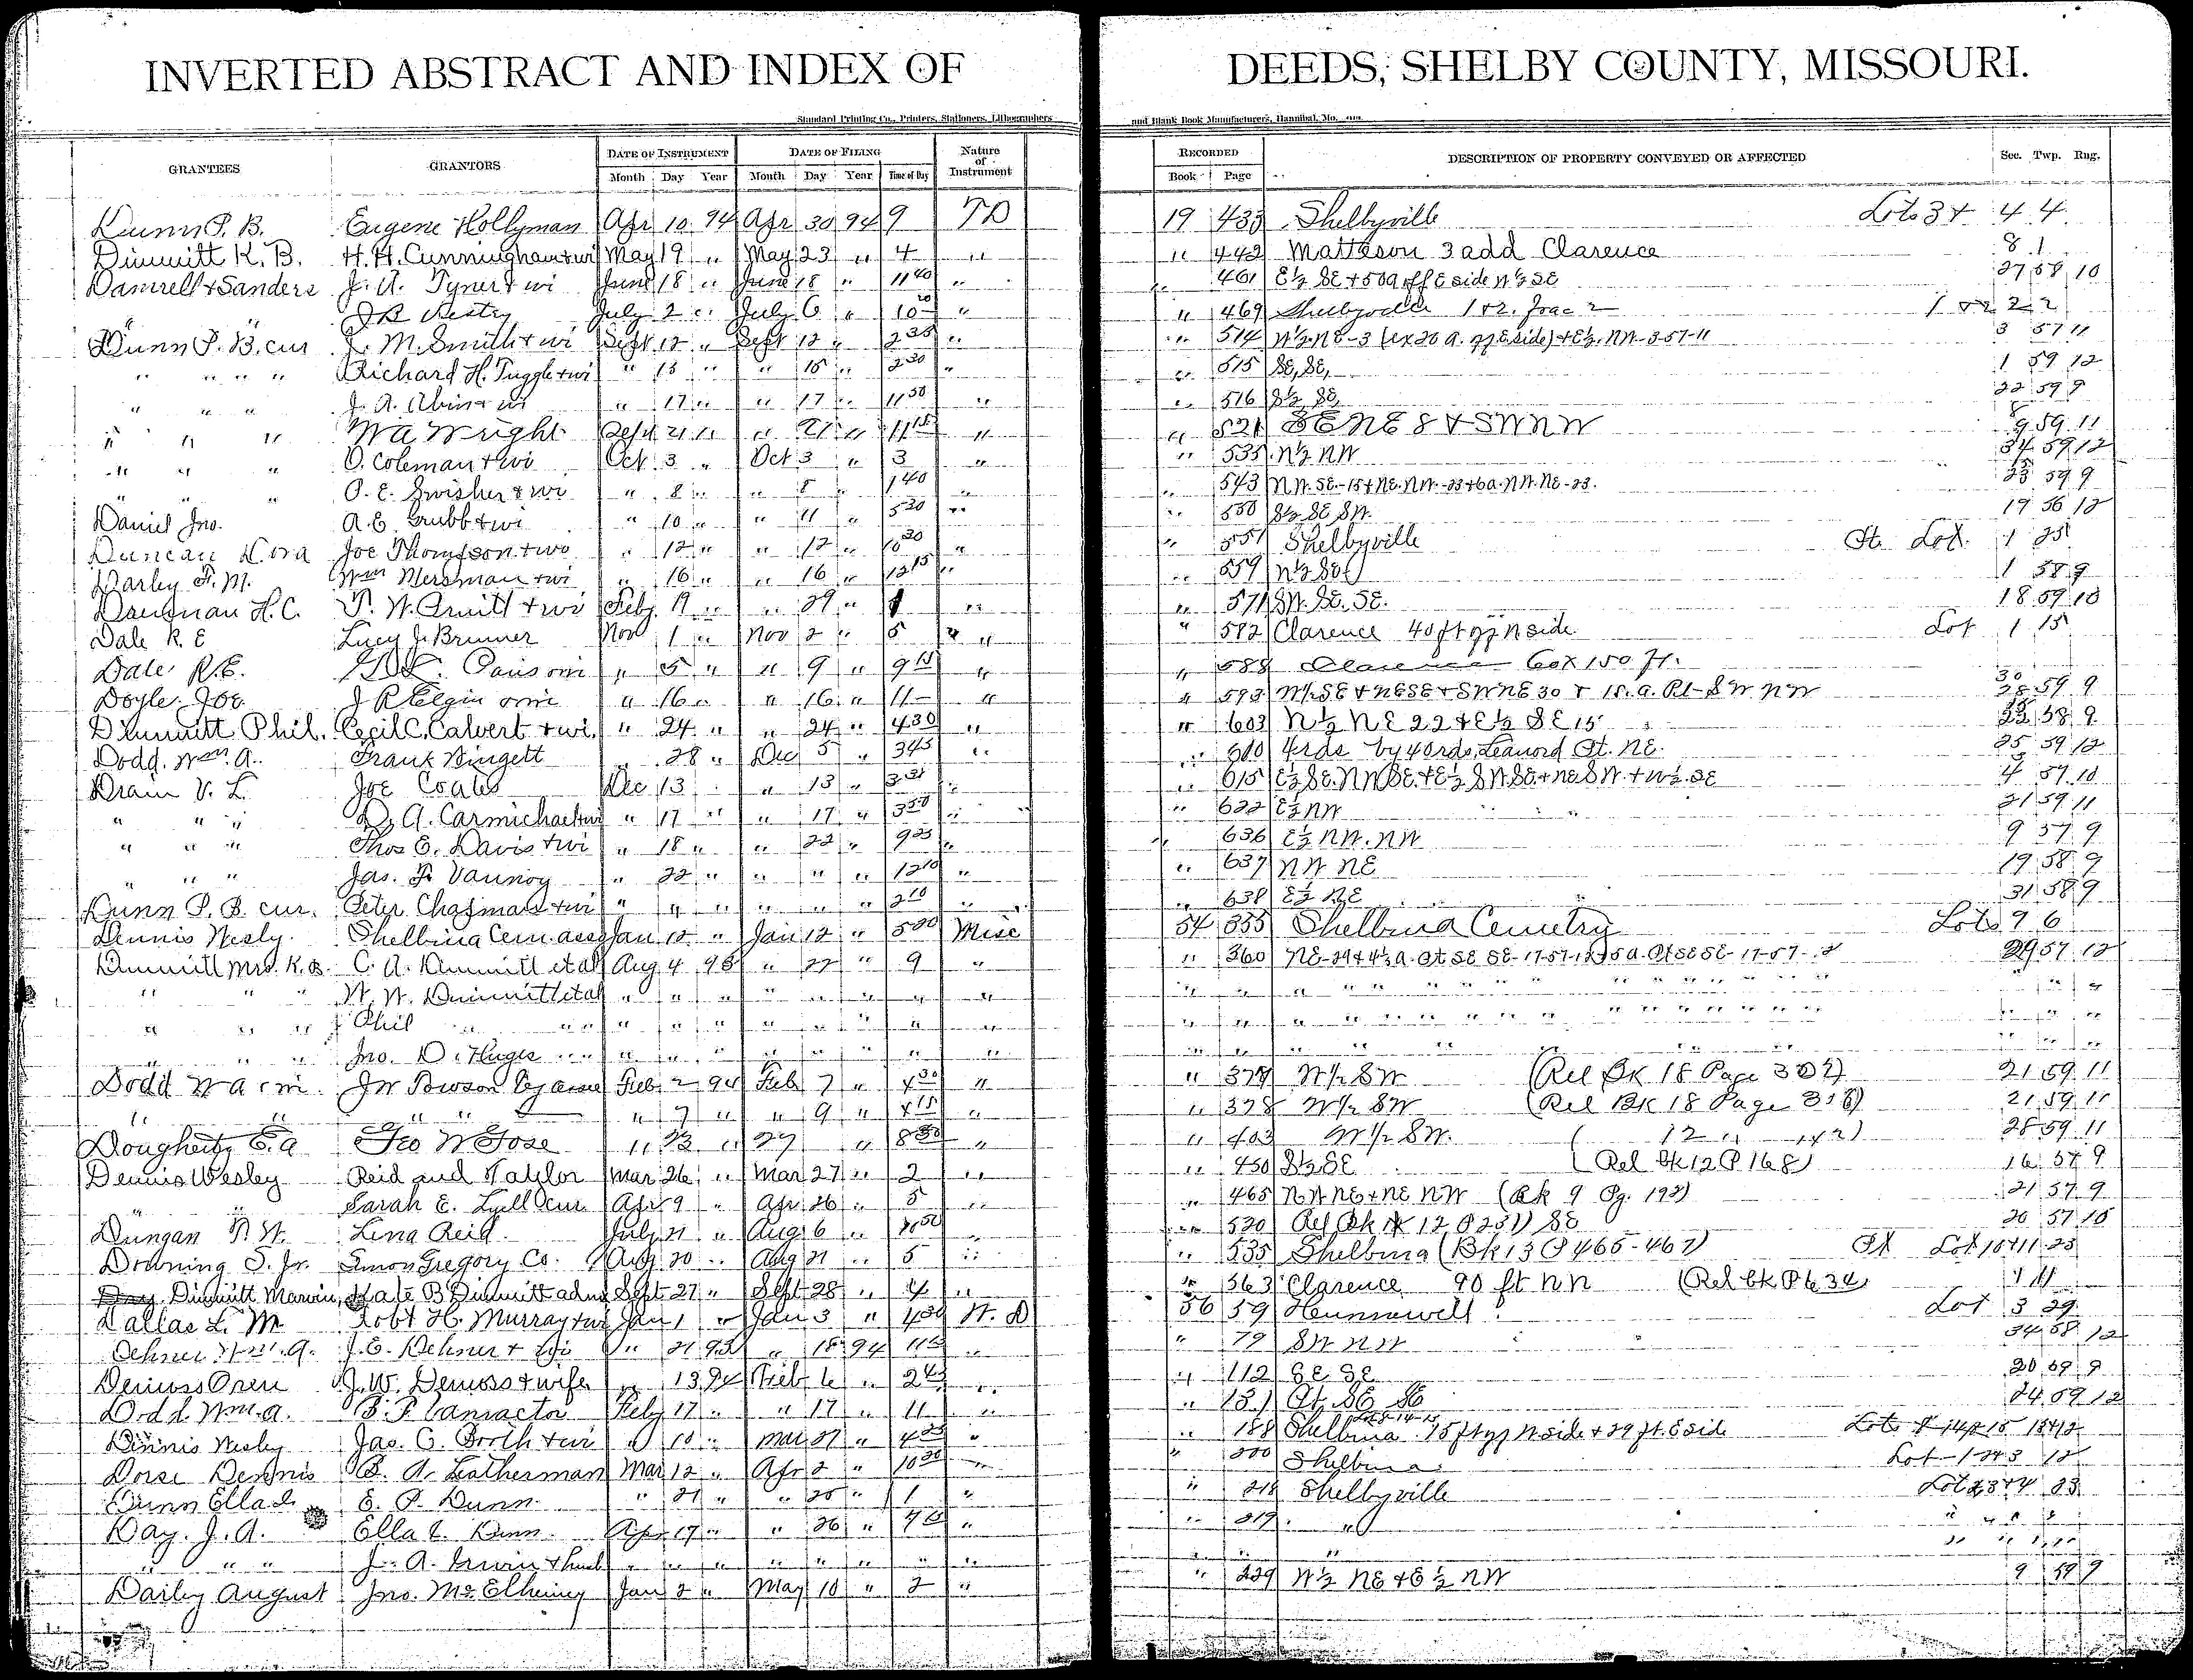 INVERTED ABSTRACT AND INDEX OF DEEDS, SHELBY COUNTY, MISSOURI.
Standard Printing Co., Printers, Stationers, Lithographers and Blank Book Manufacturers, Hannibal, Mo.
GRANTEES GRANTORS DATE OF INSTRUMENT DATE OF FILING Nature of Instrument RECORDED DESCRIPTION OF PROPERTY CONVEYED OR AFFECTED Sec. Twp. Rng.
Month Day Year Month Day Year Time of Day Book Page
Dunn P. B. Eugene Hollyman Apr 10 94 Apr 30 94 9 TD 19 433 Shelbyville Lots 3 + 4 4
Dimmitt K. B. H. H. Cunningham + wi May 19 " May 23 " 4 " " 442 Matteson 3 add Clarence 8 1
Damrell + Sanders J. A. Tyner + wi June 18 " June 18 " 11 40 " " 461 E½ SE + 50a off E side W½ SE 27 58 10
" " July 2 " July 6 " 10 " " 469 Shelbyville 1 + 2 2 2
Dunn P. B. cur J. M. Smith + wi Sept 12 " Sept 12 " 2 35 " " 514 W½ NE - 3 (ex 20 a. off E side) + E½ NW - 3-57-11 3 57 11
" " " " Richard H. Tuggle + wi " 15 " " 15 " 2 30 " " 515 SE, SE, 1 59 12
" " " J. A. + wi " 17 " " 17 " 11 50 " " 516 S½ SE 22 59 9
" " " W A Wright Sept 21 " " 21 " 11 15 " " 521 SE NE 8 + SW NW 8 9 59 11
" " " O. Coleman + wi Oct 3 " Oct 3 " 3 " " 535 N½ NW 34 59 12
" " " O. E. Swisher + wi " 8 " " 8 " 1 40 " " 543 NW. SE - 15 + NE. NW. - 23 + 6a. NW. NE - 23. 23 59 9
Daniel Jno. A. E. Grubb + wi " 10 " " 11 " 5 30 " " 550 S½ SE SW. 19 56 12
Duncan Dora Joe Thompson + wi " 12 " " 12 " 10 30 " " 551 Shelbyville Pt. Lot. 1 25
Darley F. M. Wm Mersman + wi " 16 " " 16 " 12 15 " " 559 N½ SE 1 58 9
H. C. P. W. + wi Feby 19 " " 29 " " " 571 SW. SE. SE. 18 59 10
Dale R. E Lucy J. Brunner Nov 1 " Nov 2 " 5 " " " 582 Clarence 40 ft off N side Lot 1 15
Dale R. E. " 5 " " 9 " 9 15 " " 588 Clarence 60 x 150 ft.
Doyle Joe J R Elgin " 16 " " 16 " 11 " " 593 W½ SE + NE SE + SW NE 30 + 15. a. Pt - SW NW 30 28 59 9
Dimmitt Phil. Cecil C. Calvert + wi " 24 " " 24 " 4 30 " 603 N½ NE 22 + E½ SE 15 22 58 9
Dodd. Wm. A. Frank " 28 " Dec 5 " 3 45 " " 610 4 rds by 40 rds, Leanord Pt. NE. 25 59 12
Drain V. L. Joe Coates Dec 13 " 13 " " " 615 E½ SE. NW SE. + E½ SW. SE + NE SW. + W½ SE 4 57 10
" " " D. A. Carmichael + wi " 17 " " 17 " 3 50 " " 622 E½ NW 21 59 11
" " " Thos E. Davis + wi " 18 " " 22 " 9 25 " " 636 E½ NW. NW 9 57 9
" " " Jas. F. Vannoy " 22 " " " " 12 10 " " 637 NW NE 19 58 9
Dunn P. B. cur. Peter Chapman + wi " " " " " " 2 10 " " 638 E½ NE 31 58 9
Dennis Wesly. Shelbina Cem asso Jan 12 " Jan 12 " 5 00 Misc 54 355 Shelbina Cemetry Lots 9 6
Dimmitt Mrs. K. B. C. A. Dimmitt et al Aug 4 93 " 22 " 9 " " 360 NE - 29 + 4½ a. Pt SE SE - 17-57-12 + 5 a. Pt SE SE - 17-57-12 29 57 12
" " " W. W. Dimmitt et al " " " " " " " " " " " " "
" " " Phil " " " " " " " " " " " "
" " " Jno. D. Huges " " " " " " " " " " " "
Dodd W A J W Towson Feb 2 94 Feb 7 " 4 30 " " 377 W½ SW (Rel Bk 18 Page 307) 21 59 11
" " " " " 7 " " 9 " 4 15 " " 378 W½ SW (Rel Bk 18 Page 318) 21 59 11
Dougherty E. A Geo W Gose " 23 " 27 " 8 30 " " 403 W½ SW. ( " 12 " 142) 28 59 11
Dennis Wesley Reid and Taylor Mar 26 " Mar 27 " 2 " " 450 S½ SE (Rel Bk 12 P 168) 16 57 9
" " Sarah E. Apr 9 " Apr 26 " 5 " " 465 NW NE + NE NW (Bk 9 Pg. 192) 21 57 9
Dungan P. W. Lena Reid July 21 " Aug 6 " 10 50 " " 520 Rel Bk 12 P 231) SE 20 57 10
Downing S. Jr. Simon Gregory Co. Aug 20 " Aug 21 " 5 " " 535 Shelbina (Bk 13 P 465-467) Pt Lot 10 + 11 23
Dimmitt Marvin, Kate B Dimmitt adm Sept 27 " Sept 28 " 4 " " 563 Clarence 90 ft NW (Rel Bk P 634 1 11
Dallas L. M Robt H. Murray + wi Jan 1 " Jan 3 " 4 30 W. D 56 59 Hunnewell Lot 3 29
Dehner Wm. A. J. E. Dehner + wi " 21 93 " 18 94 11 " " 79 SW NW 34 58 12
Demoss Oren J. W. Demoss + wife " 13 94 Feb 6 " 2 45 " " 112 SE. SE 20 59 9
Dodd. Wm. A. B. F. Feby 17 " " 17 " 11 " " 131 Pt. SE SE 24 59 12
Dennis Wesly Jas. C. + wi " 10 " Mar 27 " 4 25 " " 188 Shelbina 15 ft off N side + 29 ft. E side Lots
Dorsi Dennis B. A. Leatherman Mar 12 " Apr 2 " 10 30 " " 200 Shelbina Lot - 1 2 + 3 12
Dunn Ella L E. P. Dunn " 21 " " 25 " 1 " " 218 Shelbyville Lot 2 3 + 4 23
Day. J. A. Ella L. Dunn. Apr 17 " " 26 " " " 219 "
" " " J. A. Irwin + husb " " " " " " " " " "
Dailey August Jno. McElheiney Jan 2 " May 10 " 2 " " 229 W½ NE + E½ NW 9 59 9